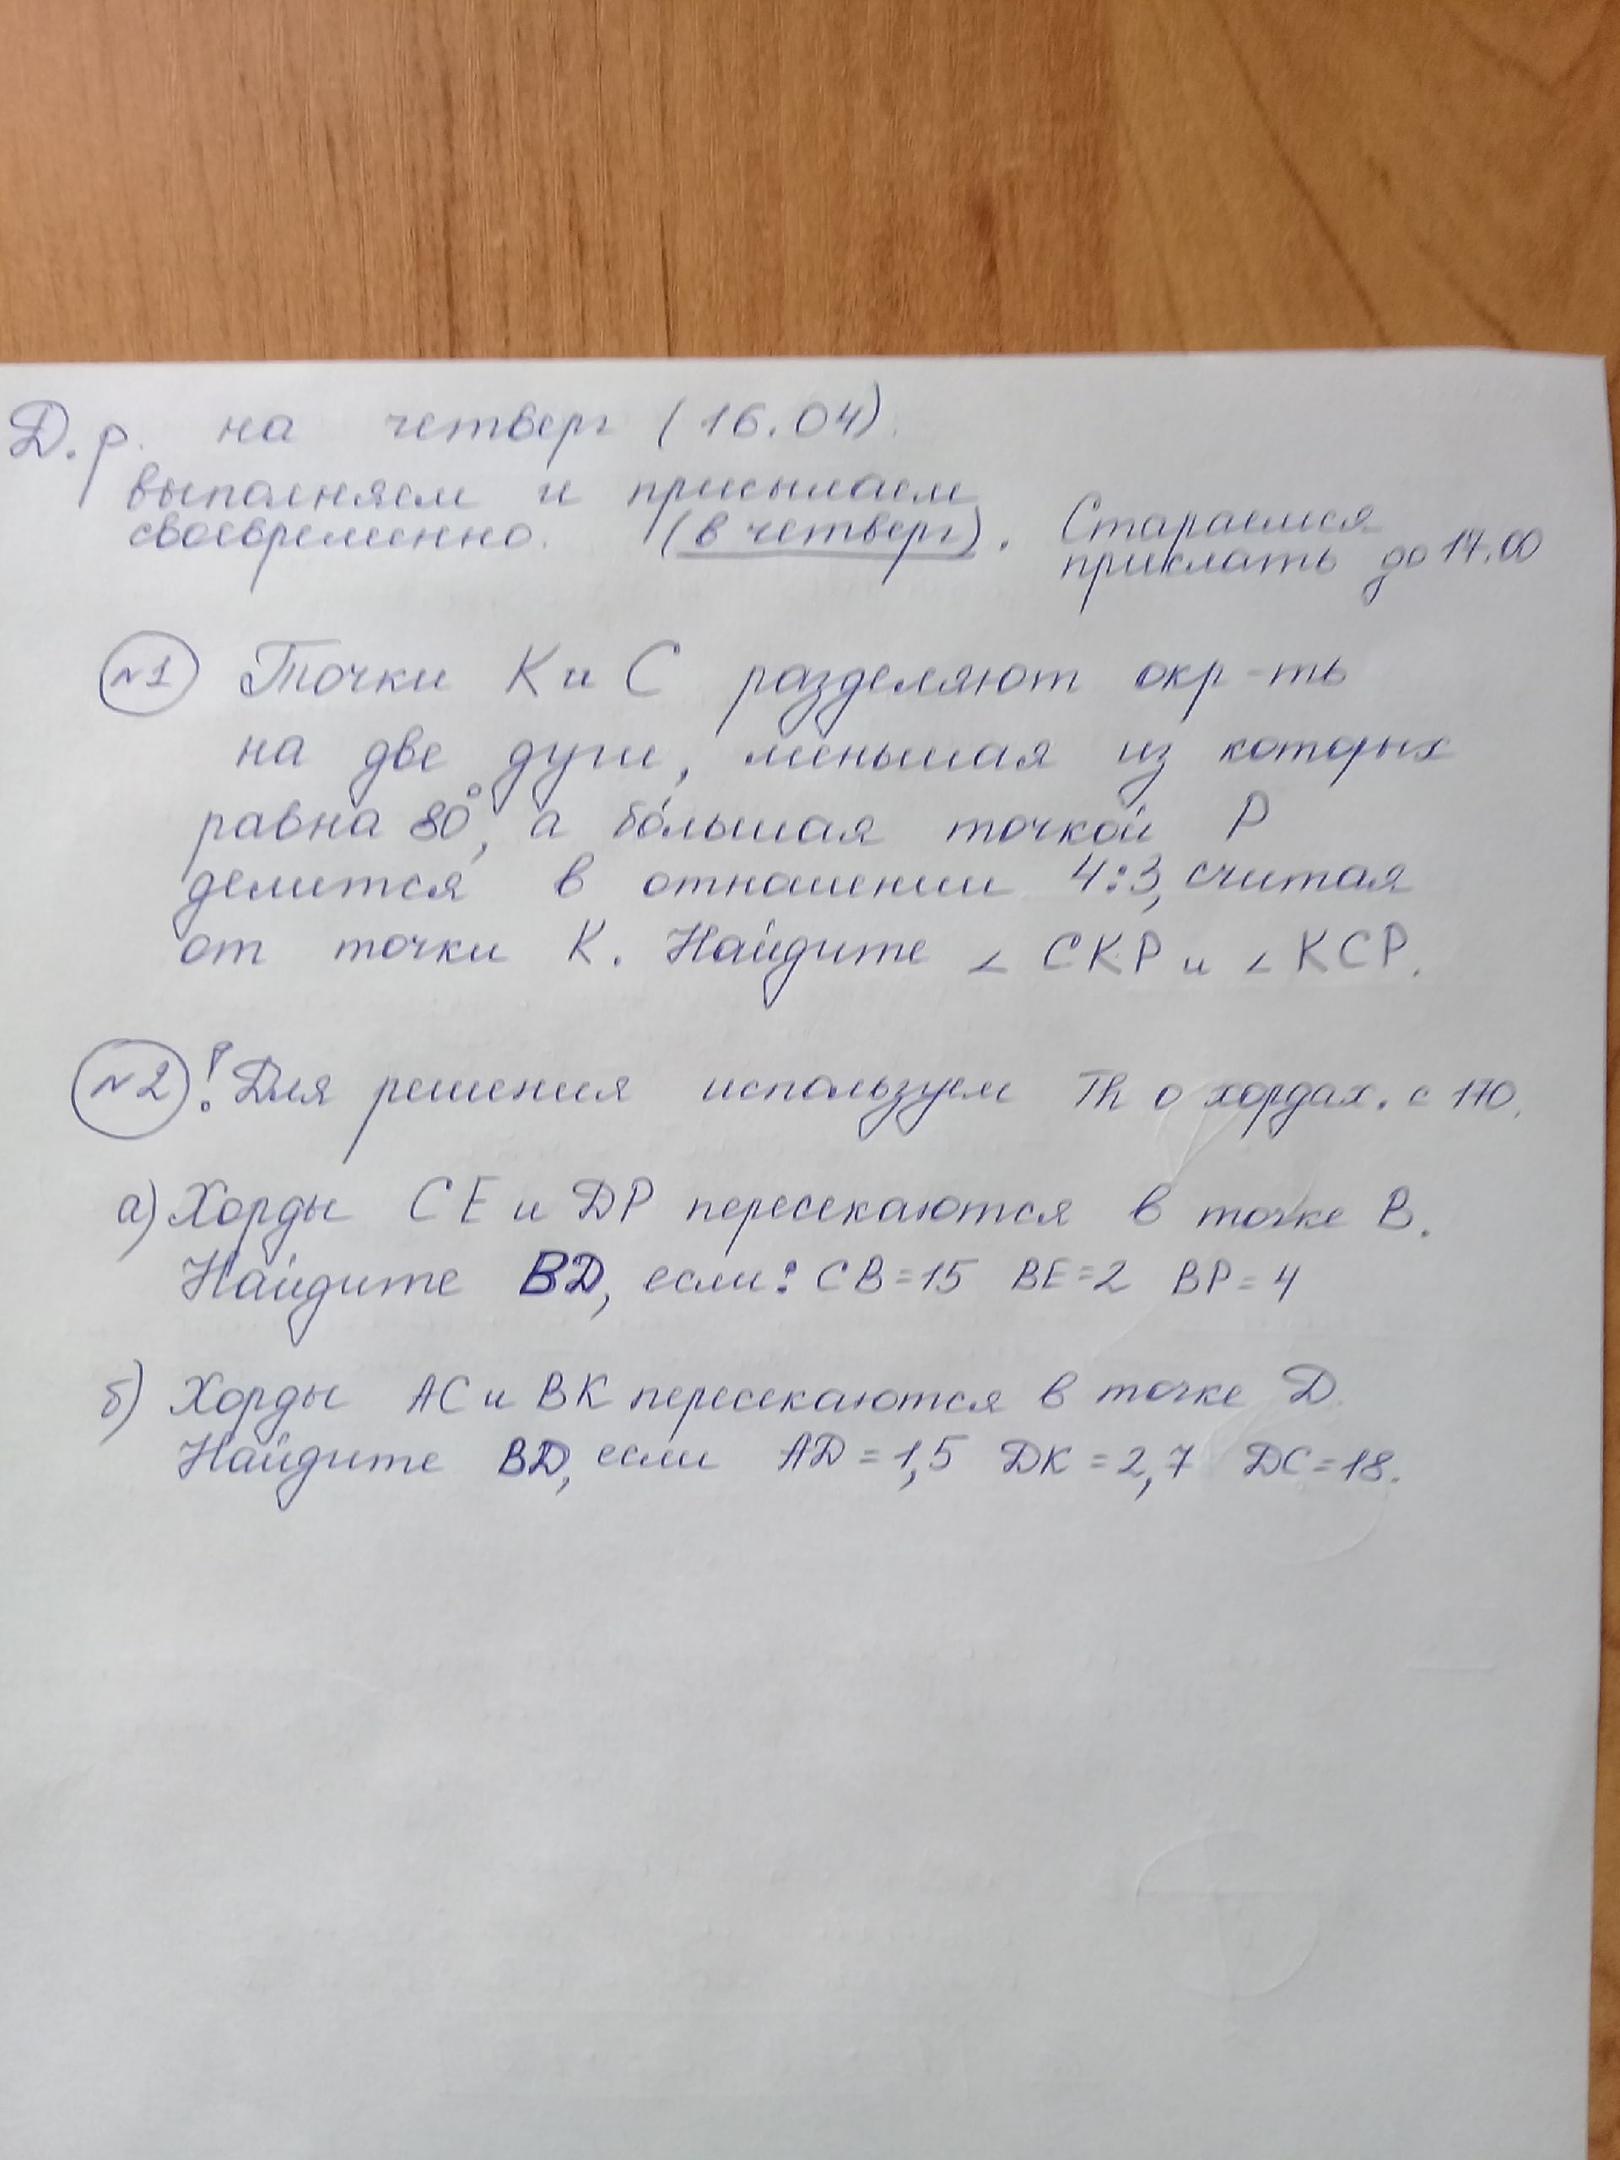 Д.р. на четверг (16.04).
выполняем и присылаем
своевременно. (в четверг). Стараемся
прислать до 17.00
№1 Точки K и C разделяют окр-ть
на две дуги, меньшая из которых
равна 80°, а бо́льшая точкой P
делится в отношении 4:3, считая
от точки K. Найдите ∠ CKP и ∠ KCP.
№2 ! Для решения используем Th о хордах. с 170.
а) Хорды CE и DP пересекаются в точке B.
Найдите BD, если: CB=15 BE=2 BP=4
б) Хорды AC и BK пересекаются в точке D.
Найдите BD, если AD=1,5 DK=2,7 DC=18.